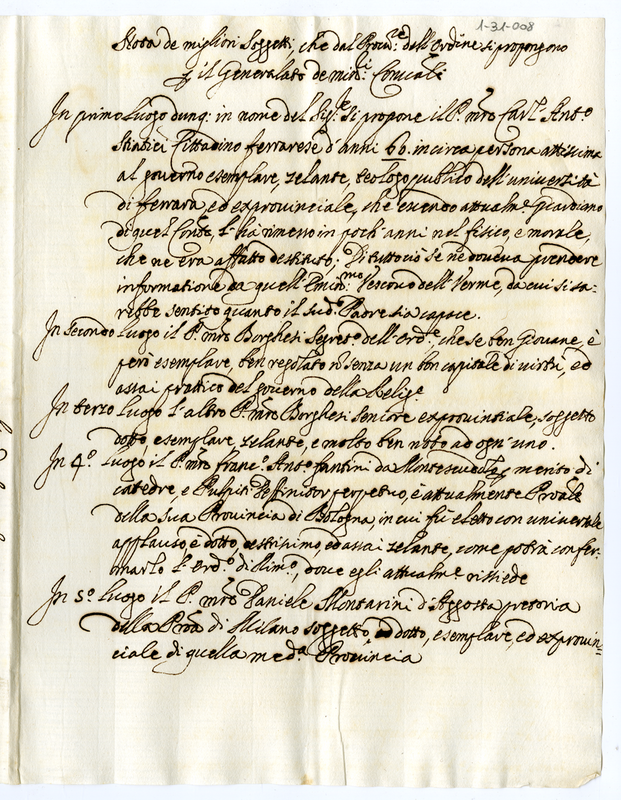 1-31-008
Nota de migliori Soggetti, che dal Procur.re dell'Ordine si propongono
p il Generalato de min.i Con.cali
In primo luogo dunq: in nome del Sig.e si propone il P. mro Carl' Ant.o
Cittadino ferrarese d'anni 60. in circa persona attissima
al governo esemplare, zelante, teologo publico dell'università
di ferrara, ed exprovinciale, che essendo attualm.e Guardiano
di quel Con.to, l'ha rimesso in poch'anni nel fisico, e morale,
che ne era affatto destituto; Di tutto ciò se ne doveva prendere
informatione da quell'Emin.mo Vescovo dell'Verme, da cui si sa-
rebbe sentito quanto il sud.o Padre sia capace.
In secondo luogo il P. mro Borghesi Segret.o dell'Ord.e, che se ben Giovane, è
però esemplare, ben regolato n senza un bon capitale di virtù, ed
assai prattico del governo della Relig.e
In terzo luogo l'altro P. mro Borghesi seniore exprovinciale, soggetto
dotto, esemplare, zelante, e molto ben noto ad ogn'uno.
In 4.o luogo il P. mro franc.o Ant.o fantini da Montescudolo, merito di
catedre, e Pulpiti Deffinitor perpetuo, è attualmente Pro.ale
della sua Provincia di Bologna, in cui fù eletto con universale
applauso, è dotto, destrissimo, ed assai zelante, come potrà confer-
marlo l'Ord.o di Rim.o, dove egli attualm.e rissiede
In 5.o luogo il P. mro Daniele Montarini d'Aggosta pretoria
della Pro.a di Milano soggetto, dotto, esemplare, ed exprovin=
ciale di quella med.a Provincia